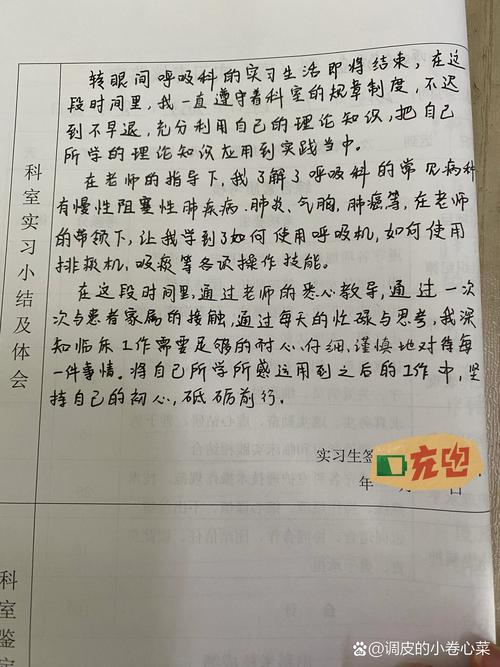 转眼间呼吸科的实习生活即将结束,在这
段时间里,我一直遵守着科室的规章制度,不迟
到不早退,充分利用自己的理论知识,把自己
所学的理论知识应用到实践当中。
在老师的指导下,我了解了呼吸科的常见病种
有慢性阻塞性肺疾病、肺炎、气胸,肺癌等,在老师
的带领下,让我学到了如何使用呼吸机,如何使用
排痰机,吸痰等各项操作技能。
在这段时间里,通过老师的悉心教导,通过一次
次与患者家属的接触,通过每天的忙碌与思考,我深
知临床工作需要足够的耐心仔细、谨慎地对待每
一件事情。将自己所学所感运用到之后的工作中,坚
持自己的初心,砥砺前行。
科室实习小结及体会
实习生签
充电
年 日
科室鉴定
@调皮的小卷心菜